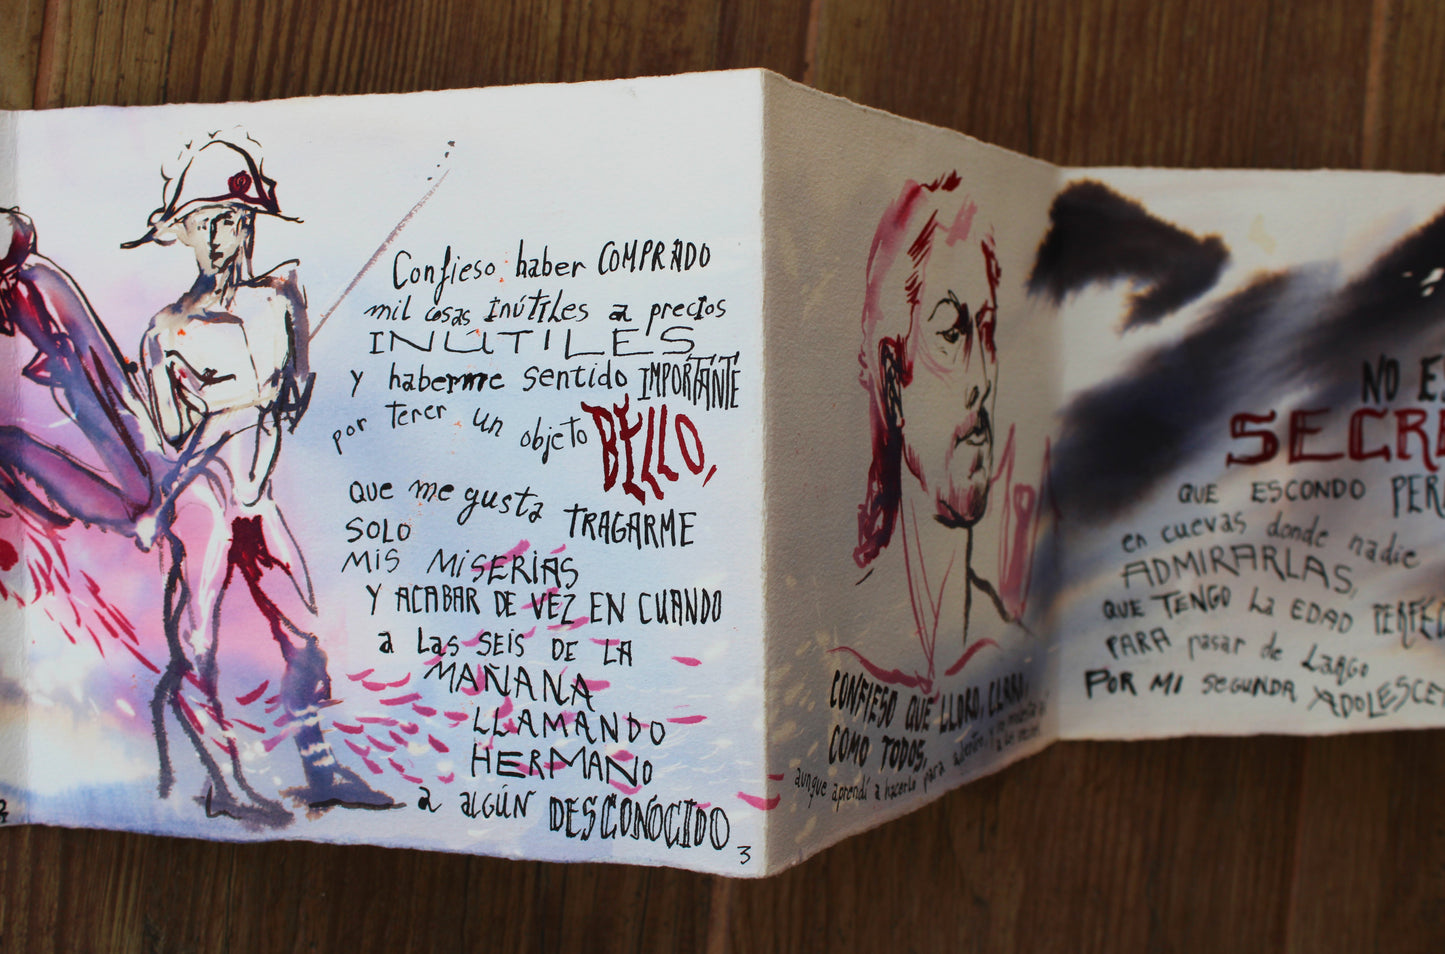 Confieso haber COMPRADO
mil cosas INÚTILES a precios
INÚTILES
y haberme sentido IMPORTANTE
por tener un objeto BELLO,
que me gusta
SOLO TRAGARME
MIS MISERIAS
Y ACABAR DE VEZ EN CUANDO
a LAS SEIS DE LA
MAÑANA
LLAMANDO
HERMANO
a ALGÚN DESCONOCIDO
3
CONFIESO QUE LLORO, CLARO,
COMO TODOS,
aunque aprendí a hacerlo para adentro, y
NO E
SECRE
QUE ESCONDO PER
en cuevas donde nadie
ADMIRARLAS,
QUE TENGO LA EDAD PERFEC
PARA pasar de LARGO
POR MI SEGUNDA ADOLESCE